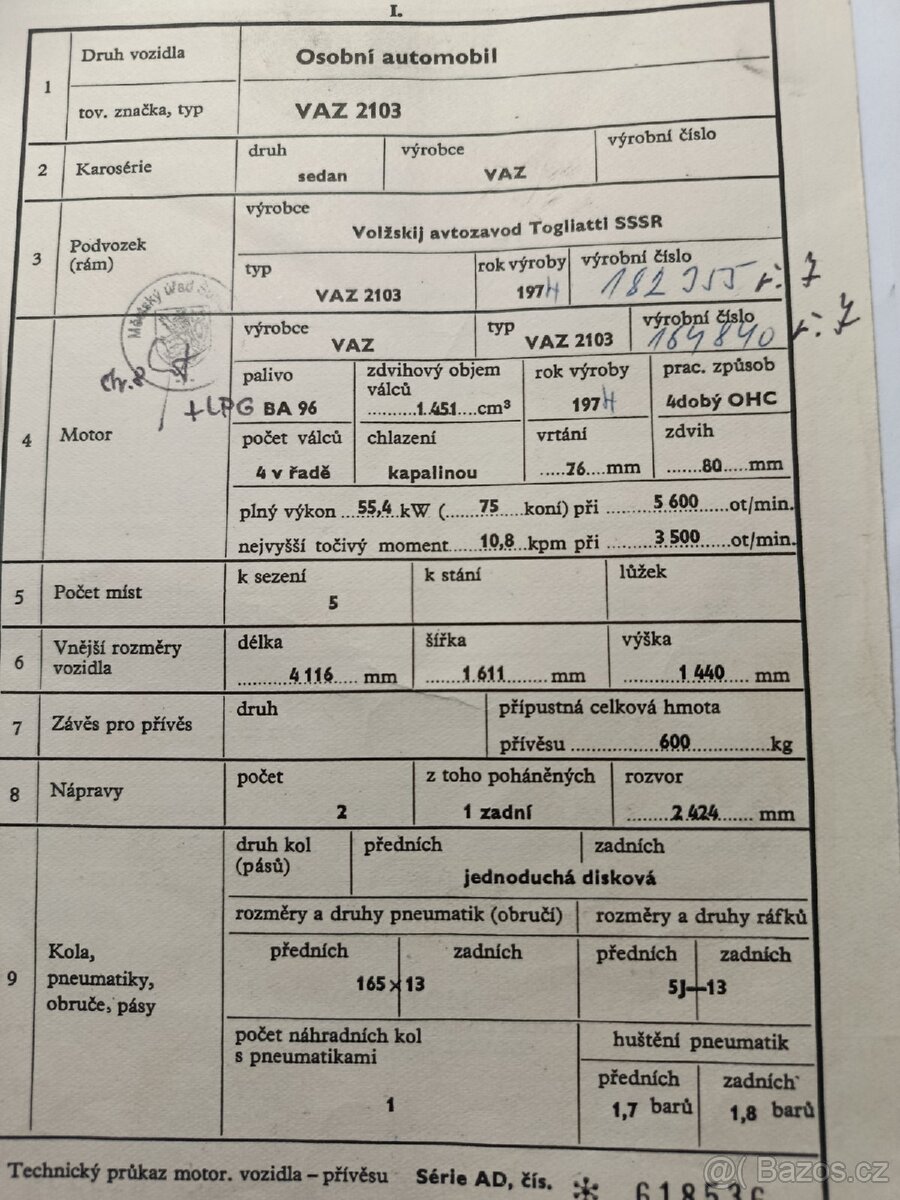 I.
1 Druh vozidla Osobní automobil
tov. značka, typ VAZ 2103
2 Karosérie druh sedan výrobce VAZ výrobní číslo
3 Podvozek (rám) výrobce Volžskij avtozavod Togliatti SSSR
typ VAZ 2103 rok výroby 1974 výrobní číslo 182 355 ř. 7
Městský úřad
4 Motor výrobce VAZ typ VAZ 2103 výrobní číslo 164840 ř. 7
palivo + LPG BA 96 zdvihový objem válců 1.451 cm³ rok výroby 1974 prac. způsob 4dobý OHC
počet válců 4 v řadě chlazení kapalinou vrtání 76 mm zdvih 80 mm
plný výkon 55,4 kW (75 koní) při 5 600 ot/min.
nejvyšší točivý moment 10,8 kpm při 3 500 ot/min.
5 Počet míst k sezení 5 k stání lůžek
6 Vnější rozměry vozidla délka 4 116 mm šířka 1.611 mm výška 1 440 mm
7 Závěs pro přívěs druh přípustná celková hmota
přívěsu 600 kg
8 Nápravy počet 2 z toho poháněných 1 zadní rozvor 2 424 mm
9 Kola, pneumatiky, obruče, pásy
druh kol (pásů) předních zadních
jednoduchá disková
rozměry a druhy pneumatik (obručí) rozměry a druhy ráfků
předních zadních předních zadních
165 × 13 5J—13
počet náhradních kol s pneumatikami 1 huštění pneumatik
předních 1,7 barů zadních 1,8 barů
Technický průkaz motor. vozidla – přívěsu Série AD, čís. * 618536
@( Bazos.cz